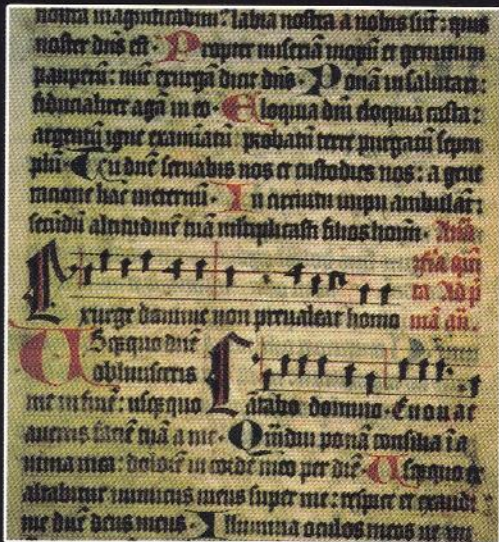 nostra magnificabim⁹: labia nostra a nobis sūt: quis
noster dñs est. Propter miseriā inopū et gemitum
pauperū: nūc exurgā dicit dñs. Ponā in salutari:
fiducialiter agā in eo. Eloquia dñi eloquia casta:
argentū igne examiatū: probatū terre purgatū septu
plū. Tu dñe seruabis nos et custodies nos: a gene
ratione hac in eternū. In circuitu impii ambulāt:
secūdū altitudinē tuā multiplicasti filios hoim.
feria quin
ta Ad p
Exurge domine non preualeat homo mā añ.
Usqꝫquo dñe
obliuisceris
me in finē: usqꝫquo Cātabo domino. Euouae
auertis faciē tuā a me. Qm̄diu ponā consilia ī a
nima mea: dolorē in corde meo per diē. Usqꝫquo ex
altabitur inimicus meus super me: respice et exaudi
me dñe deus meus. Illumina oculos meos ne